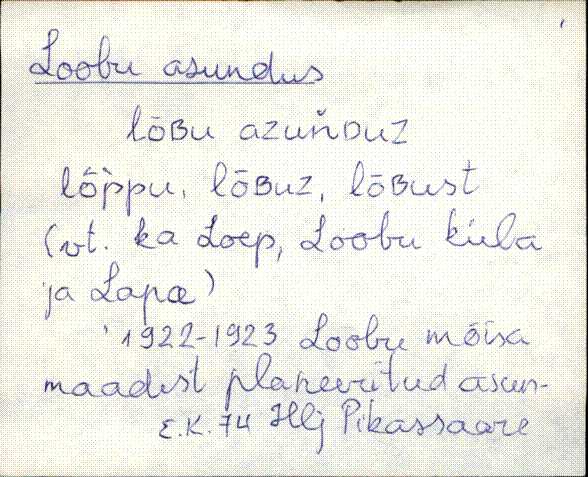 Loobu asundus
lōʙu azuňᴅuz
lō̆ppu, lōʙuz, lōʙust
(vt. ka Loep, Loobu küla
ja Lapæ)
1922-1923 Loobu mõisa
maadest planeeritud asun-
E.K. 74 Hlj Pikassaare